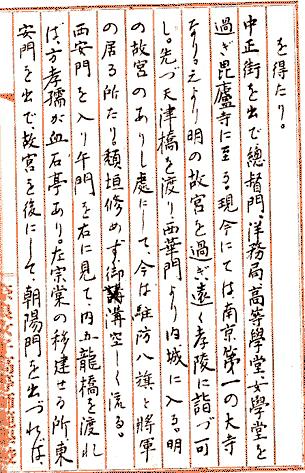 を得たり。
中正街を出で總督門、洋務局高等學堂女學堂を
過ぎ毘盧寺に至る。現今にては南京第一の大寺
なり。之より明の故宮を過ぎ遠く孝陵に詣づ可
し。先づ天津橋を渡り西華門より内城に入る。明
の故宮のありし處にして今は駐防八旗と將軍
の居る所たり。頽垣修めず御溝空しく流る。
西安門を入り午門を右に見て、内五龍橋を渡れ
ば、方孝孺が血石亭あり。左宗棠の移建せる所東
安門を出で故宮を後にして、朝陽門を出づれば